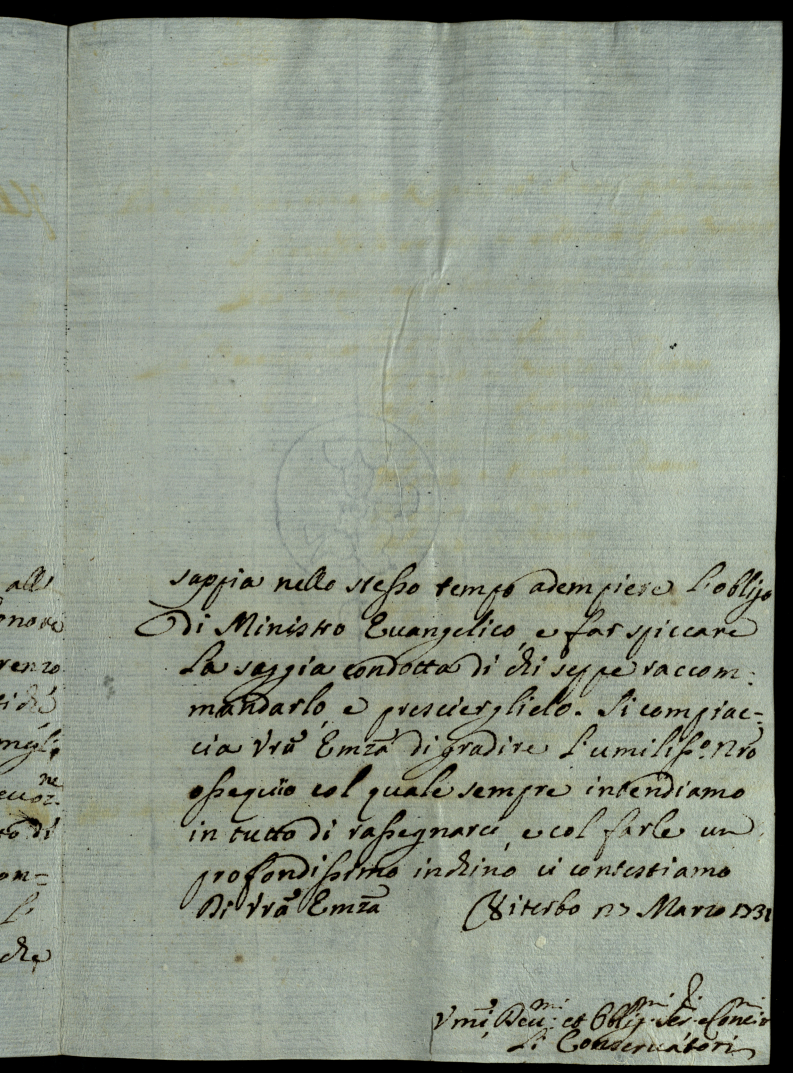 alle
onore
renzo
ti di
mgl.
euoz.ne
to di
om=
l'
che
sappia nello stesso tempo adempiere l'obligo
Di Ministro Euangelico, e far spiccare
la saggia condotta di chi seppe raccom:
mandarlo, e prescierglielo. Si compiac=
cia Vrã Emzã di gradire l'umiliss.o nrõ
ossequio col quale sempre intendiamo
in tutto di rassegnarci, e col farle un
profondissimo inchino ci contestiamo
Di Vrã Emzã Viterbo 17 Marzo 1731
Vmi, Deu.mi et Oblig.mi Ser.i
Li Conseruatori